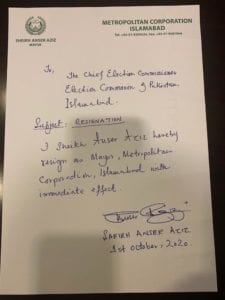 METROPOLITAN CORPORATION
ISLAMABAD
SHEIKH ANSER AZIZ
MAYOR
To,
The Chief Election Commissioner
Election Commission of Pakistan
Islamabad.
Subject: RESIGNATION
I Sheikh Anser Aziz hereby
resign as Mayor, Metropolitan
Corporation, Islamabad with
immediate effect.
ANSER AZIZ
1st October, 2020